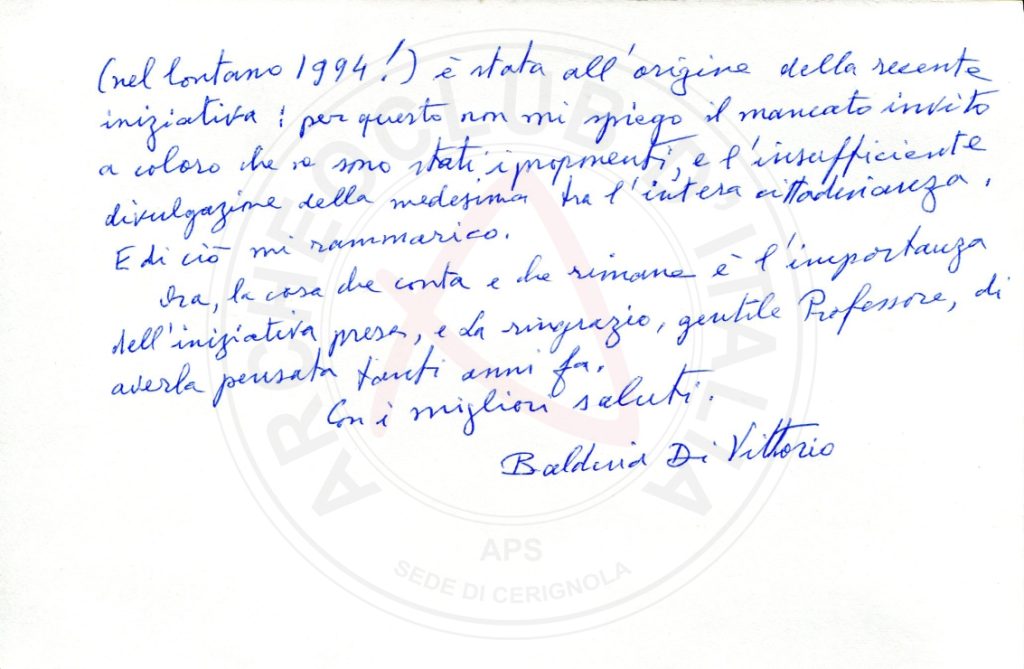 (nel lontano 1994!) è stata all'origine della recente
iniziativa: per questo non mi spiego il mancato invito
a coloro che ne sono stati i proponenti, e l'insufficiente
divulgazione della medesima tra l'intera cittadinanza.
E di ciò mi rammarico.
Ora, la cosa che conta e che rimane è l'importanza
dell'iniziativa presa, e La ringrazio, gentile Professore, di
averla pensata tanti anni fa.
Con i migliori saluti.
Baldina Di Vittorio
ARCHEOCLUB D'ITALIA
APS
SEDE DI CERIGNOLA